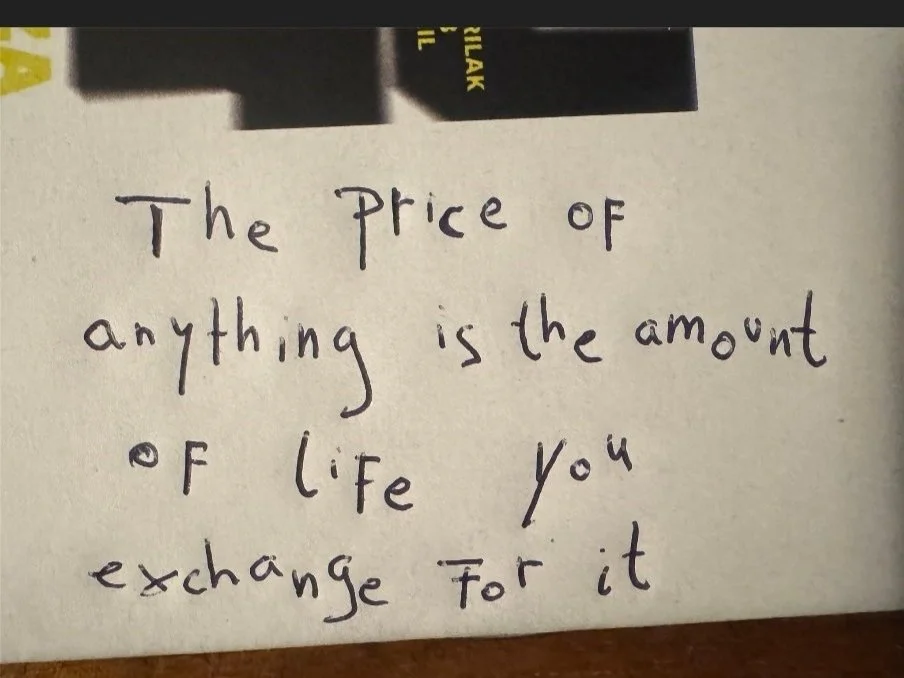 RILAK
IL
The Price of
anything is the amount
of life you
exchange For it